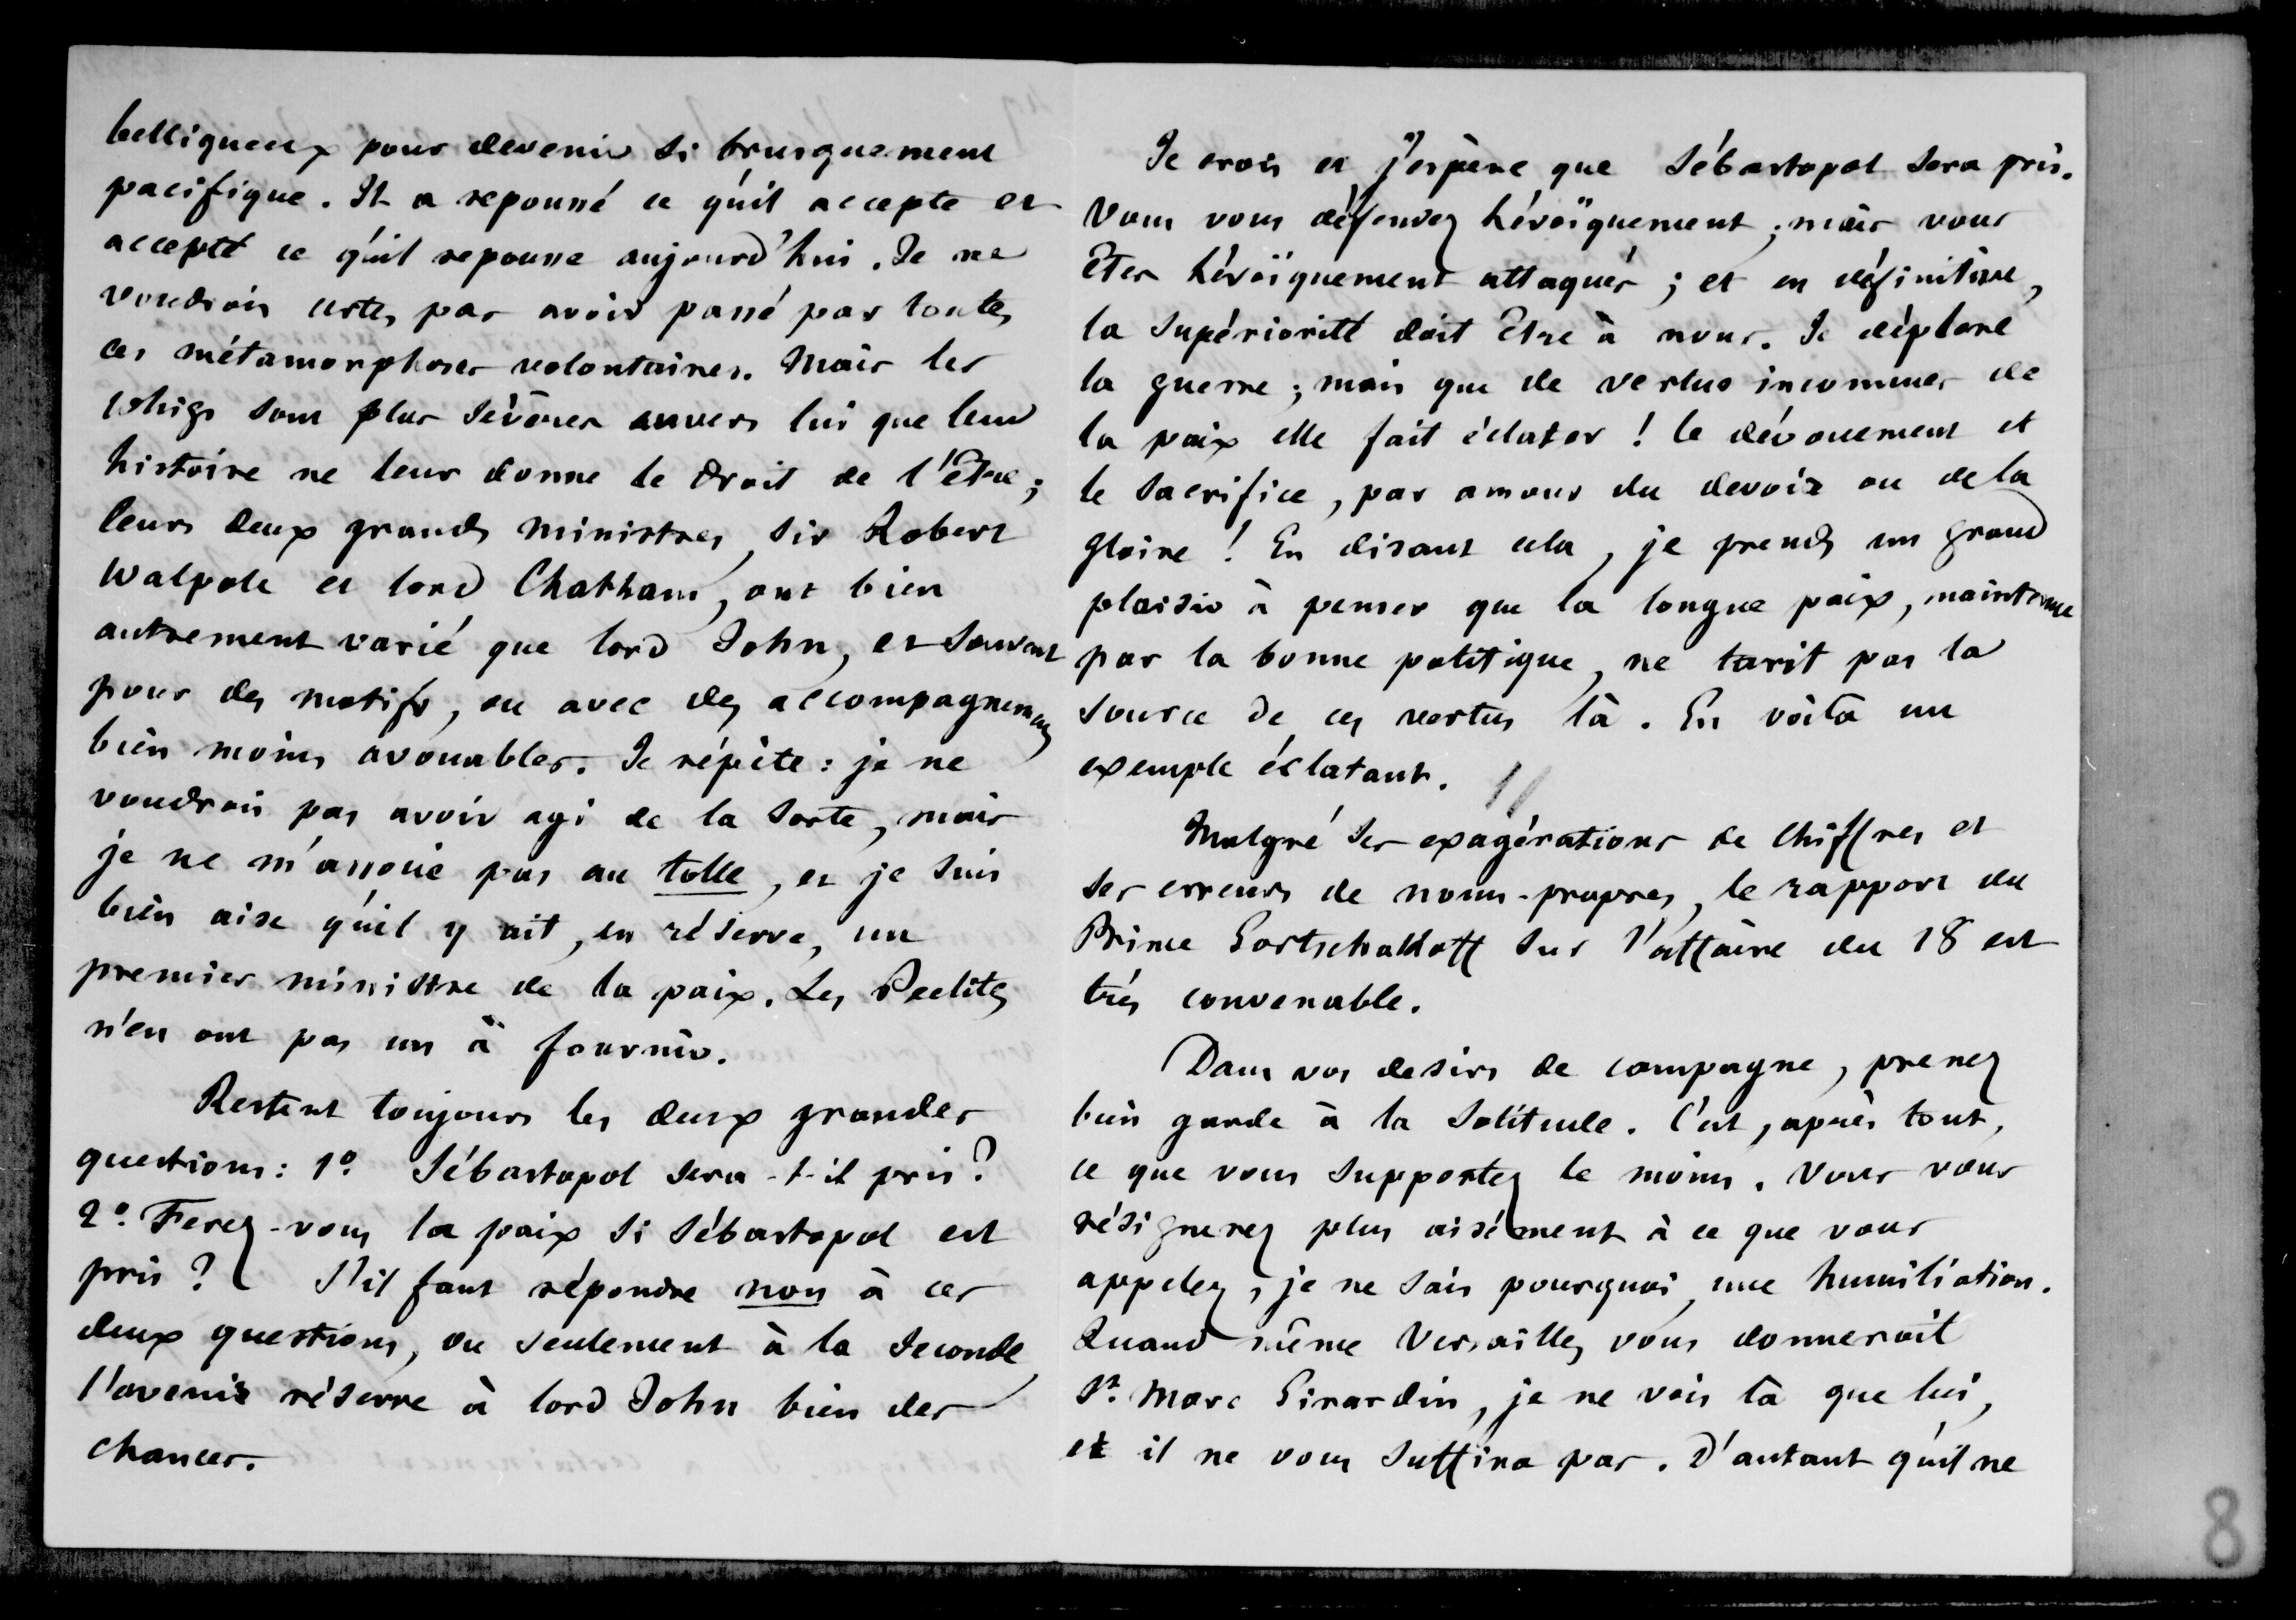 belliqueux pour devenir si brusquement
pacifique. Il a repoussé ce qu'il accepte et
accepté ce qu'il repousse aujourd'hui. Je ne
voudrois certes pas avoir passé par toutes
ces métamorphoses volontaires. Mais les
whigs sont plus sévères envers lui que leur
histoire ne leur donne le droit de l'être;
leurs deux grands ministres, Sir Robert
Walpole et lord Chatham, ont bien
autrement varié que lord John, et souvent
pour des motifs, ou avec des accompagnemens
bien moins avouables. Je répète: je ne
voudrois pas avoir agi de la sorte, mais
je ne m'associe pas au tolle, et je suis
bien aise qu'il y ait, en réserve, un
premier ministre de la paix. Les Peelites
n'en ont pas un à fournir.
Restent toujours les deux grandes
questions: 1º Sébastopol sera-t-il pris?
2º. Ferez-vous la paix si Sébastopol est
pris? S'il faut répondre non à ces
deux questions, ou seulement à la seconde
l'avenir réserve à lord John bien des
chances.
Je crois et j'espère que Sébastopol sera pris.
Vous vous défendez héroïquement; mais vous
êtes héroïquement attaqués; et en définitive,
la supériorité doit être à nous. Je déplore
la guerre; mais que de vertus inconnues de
la paix elle fait éclater! le dévouement et
le sacrifice, par amour du devoir ou de la
gloire! En disant cela, je prends un grand
plaisir à penser que la longue paix, maintenue
par la bonne politique, ne tarit pas la
source de ces vertus là. En voilà un
exemple éclatant. //
Malgré ses exagérations de chiffres et
ses erreurs de noms-propres, le rapport du
Prince Gortschakoff sur l'affaire du 18 est
très convenable.
Dans vos desirs de campagne, prenez
bien garde à la solitude. C'est, après tout,
ce que vous supportez le moins. Vous vous
résignerez plus aisément à ce que vous
appelez, je ne sais pourquoi, une humiliation.
Quand même Versailles vous donneroit
St. Marc Girardin, je ne vois là que lui,
et il ne vous suffira pas. D'autant qu'il ne
8